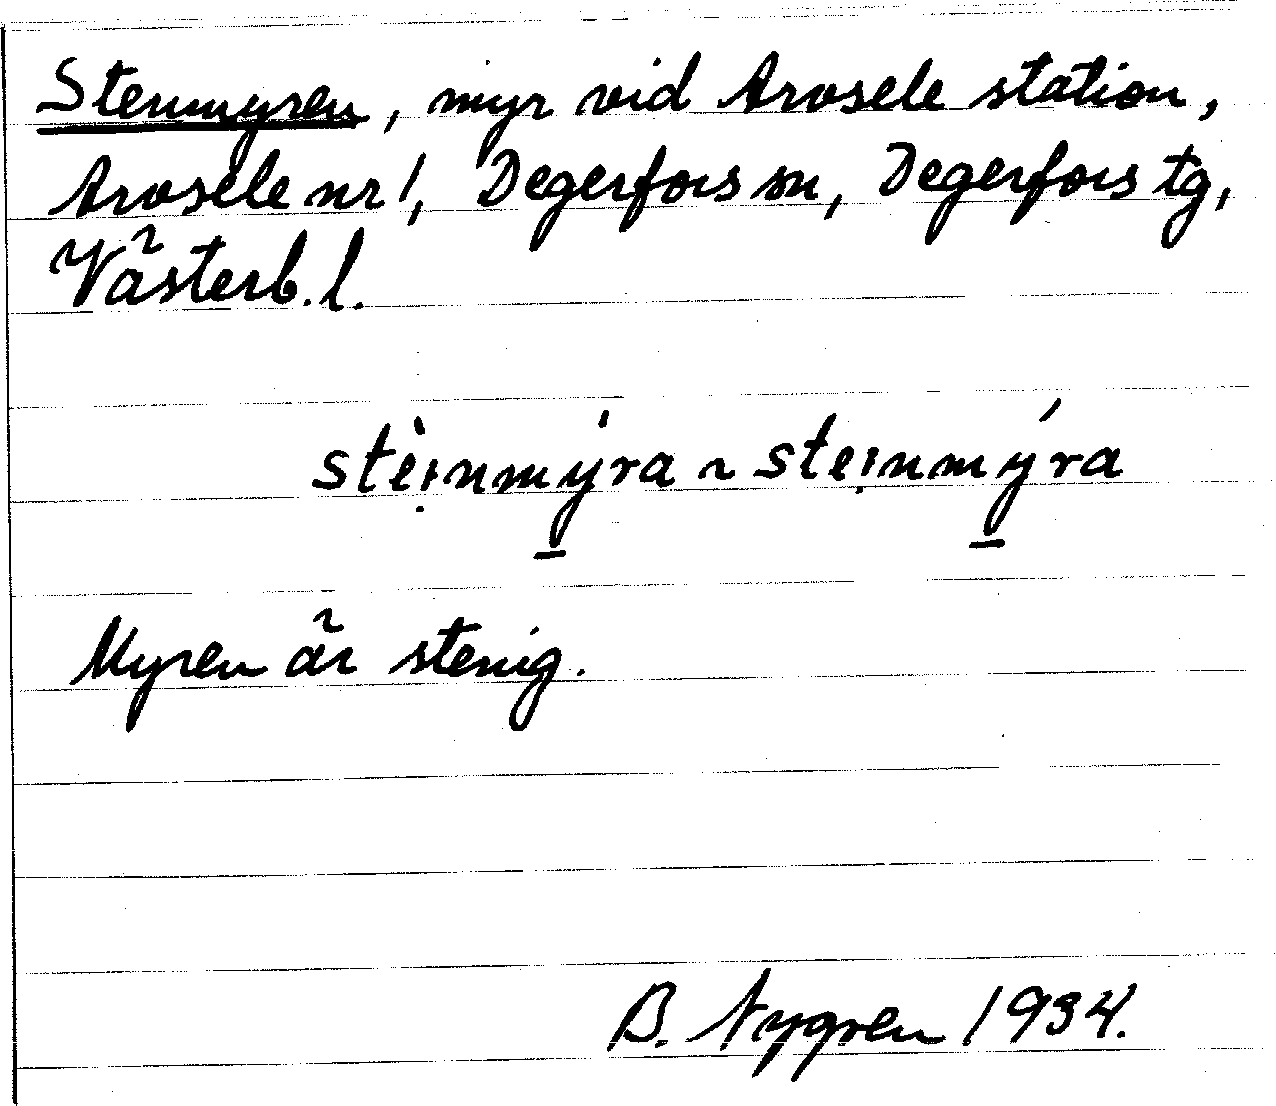 Stenmyren, myr vid Arvsele station,
Arvsele nr 1, Degerfors sn, Degerfors tg,
Västerb. l.
stèi̩nmýra ~ stei̩nmýra
Myren är stenig.
B. Nygren 1934.